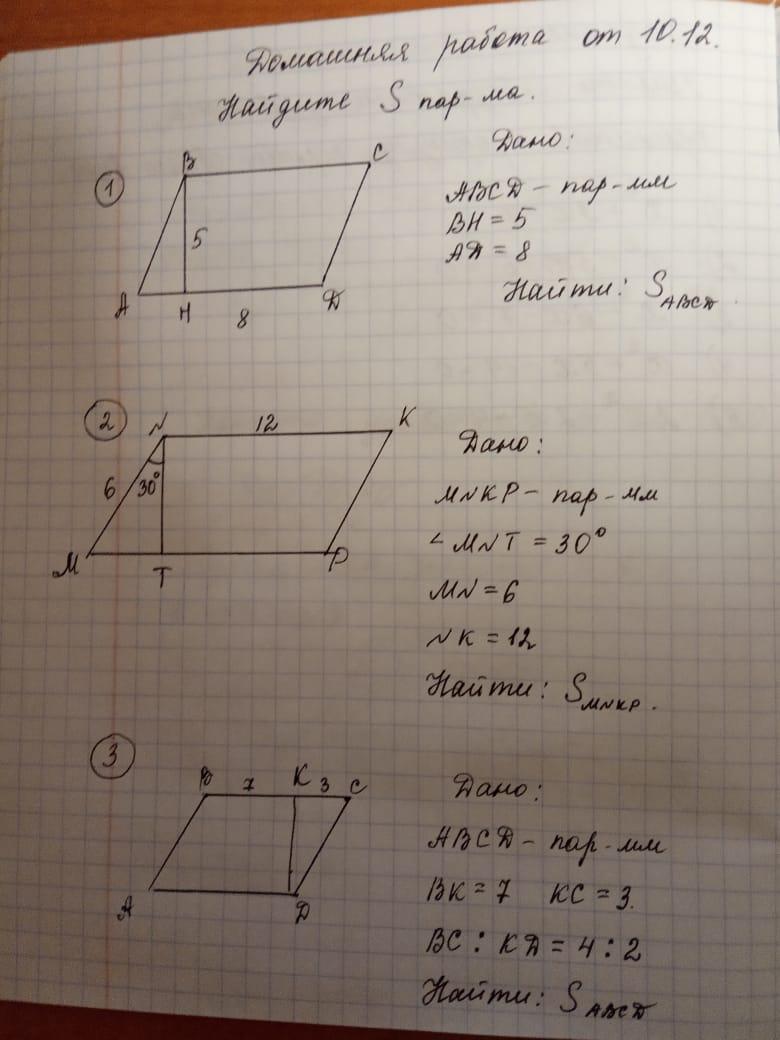 Домашняя работа от 10.12.
Найдите S пар-ма.
1
B
C
5
A
H
8
D
Дано:
ABCD - пар-мм
BH = 5
AD = 8
Найти: S ABCD.
2
N
12
K
6
30°
M
T
P
Дано:
MNKP - пар-мм
∠MNT = 30°
MN = 6
NK = 12
Найти: S MNKP.
3
B
7
K
3
C
A
D
Дано:
ABCD - пар-мм
BK = 7 KC = 3.
BC : KD = 4 : 2
Найти: S ABCD